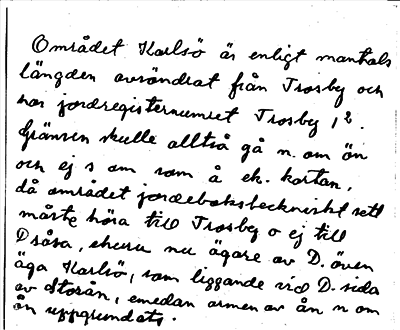 Området Karlsö är enligt mantals
längden avsöndrat från Trosby och
har jordregisternumret Trosby 1².
Gränsen skulle alltså gå n. om ön
och ej s om som å ek. kartan,
då området jordebokstekniskt sett
måste höra till Trosby o ej till
Dsåsa, ehuru nu ägare av D. även
äga Karlsö, som liggande vid D. sida
av Storån, emedan armen av ån n om
ön uppgrundats.